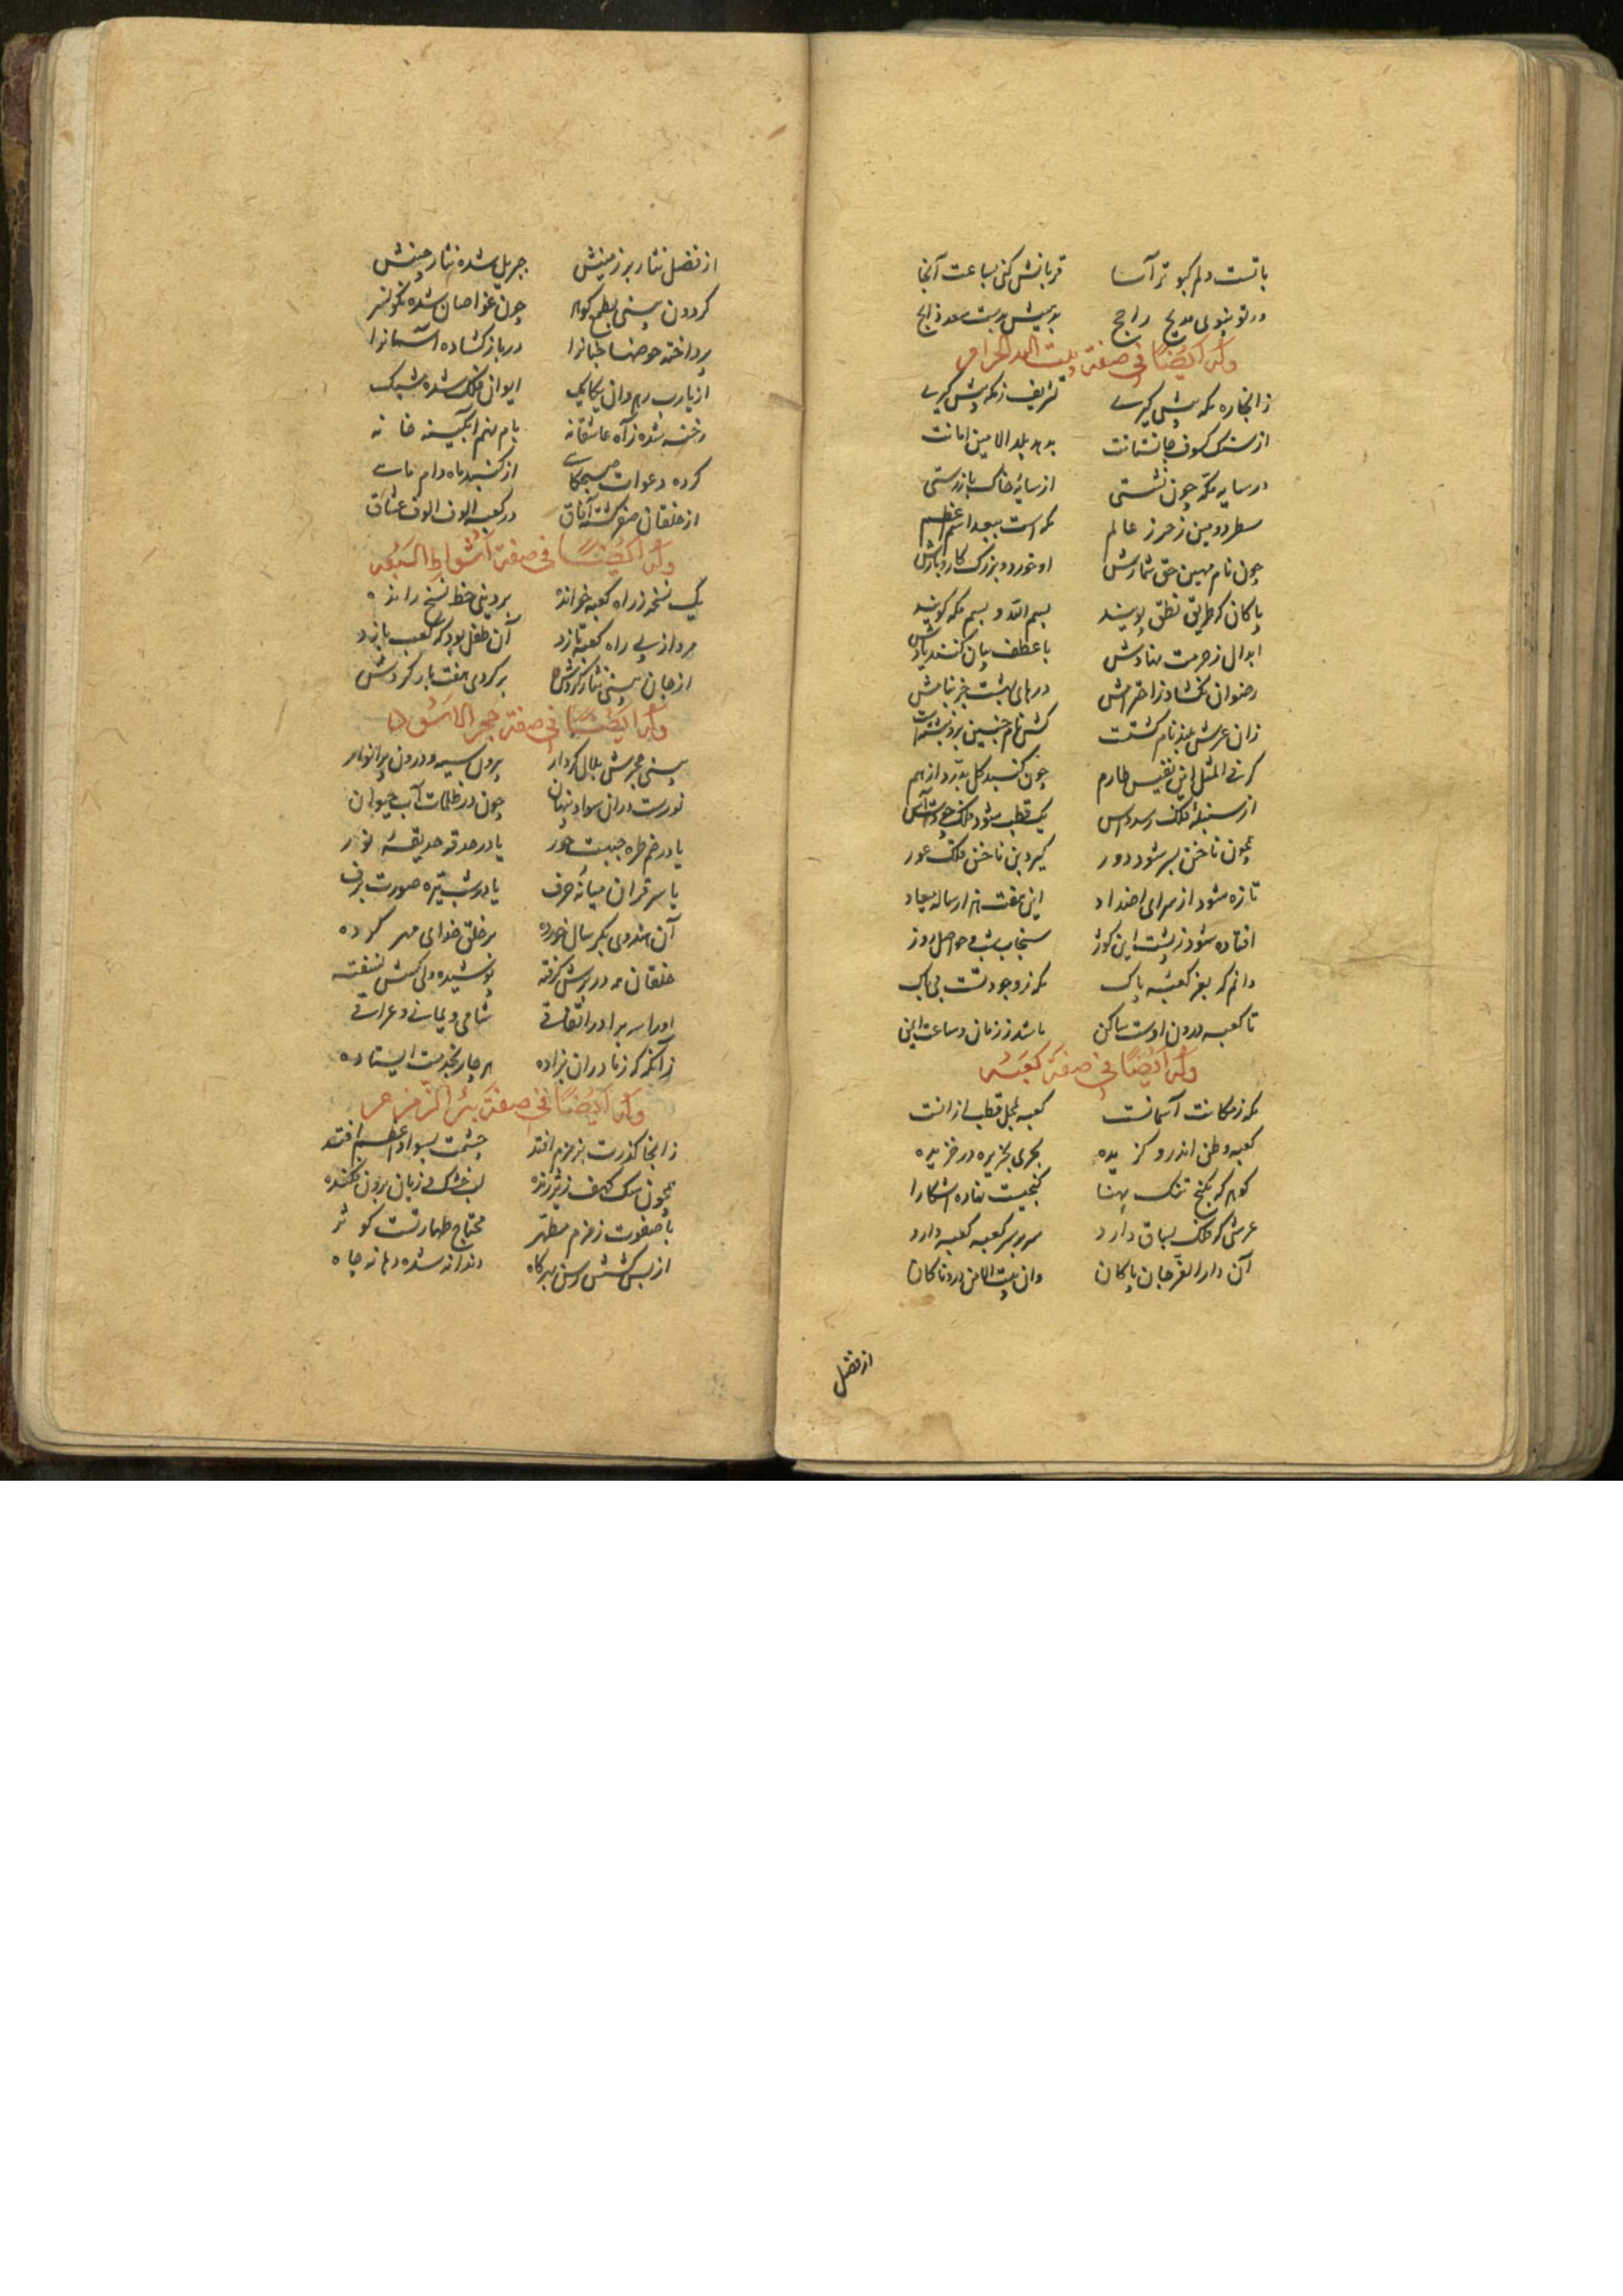 باتست دلم کبوتر آسا قربانش کنی بساعت آنجا
ور تو بنوی مدیح راجح بدهیش بدست سعد ذابح
وله ایضا فی صفة بیت الله الحرام
زانجا ره مکه پیش گیری تشریف ز مکه پیش گیری
از سنگ کسوف جانستانت بدهد بلد الامین امانت
در سایه مکه چون نشستی از سایهٔ خاک باز رستی
سطر دومین ز حرز عالم مکه است ببعد اسم اعظم
چون نام مهین حق شمارش او خورد و بزرگ کار و بارش
پاکان که طریق نطق پویند بسم الله و بسم مکه گویند
ابدال ز حرمت نهادش با عطف بیان کنند یادش
رضوان نگشاد ز احترامش درهای بهشت جز بنامش
زان عرش بلند نام گشتست کش نام جنین برو نبشتست
گر فی المثل این نفیس طارم چون گنبد گل بدرد از هم
از سنبلهٔ فلک رسد داس یک قطب شود فلک چو دستاس
همچون ناخن بسر شود دور گیرد بن ناخن فلک عور
تازه شود از سرای اضداد این هفت هزار ساله میعاد
افتاده شود ز پشت این کوژ سنجاب شب و حواصل روز
دانم که بفر کعبهٔ پاک مکه ز وجود تست بی باک
تا کعبه درون اوست ساکن باشد ز زمان و ساعت ایمن
وله ایضا فی صفة کعبه
مکه ز مکانت آسمانست کعبه بمحل قطب ازانست
کعبه وطن اندرو گزیده بحری بجزیره در خزیده
گوهر که بکنج تنگ پهنا گنجیست نهاده آشکارا
عرشی که فلک بساق دارد سر بر سر کعبه کعبه دارد
آن دار القر جان پاکان وان بیت الامن دردناکان
از فضل
از فضل نثار بر زمینش جبریل شده نثار چینش
گردون پسنی بطمع گوهر چون غواصان شده نگونسر
پرداخته حوضها جنانرا در باز گشاده آسمانرا
از یارب رهروان یکایک ایوان فلک شده مشبک
رخنه شده ز آه عاشقانه بام نهم آبگینه خانه
کرده دعوات صبحگاهی از گنبد ماه دام ماهی
از خلقان صفر گشته آفاق در کعبه الوف الوف عشاق
وله ایضا فی صفة اشواط السبعه
یک نسخه ز راه کعبه خوانده بر دینی خط نسخ رانده
مرد از پی راه کعبه تازد آن طفل بود که کعب بازد
از جان پسنی نثار گردش بر گردی هفت بار گردش
وله ایضا فی صفة حجر الاسود
بینی حجرش بلال کردار بیرون سیه و درون پر انوار
نورست دران سواد پنهان چون در ظلمات آب حیوان
یا در خم طره جبهت حور یا در حدقه حدیقهٔ نور
یا سر قران میانهٔ حرف یا در شب تیره صورت برف
آن هندوی بکر سال خورده بر خلق خدای مهر کرده
خلقان همه در برش گرفته بوسیده ولی کسش نسفته
او را سه برادر اتفاقی شامی و یمانی و عراقی
زانگه که ز مادران بزاده هر چار بخدمت ایستاده
وله ایضا فی صفة بئر الزمزم
زانجا گذرت بزمزم افتد چشمت بسواد اعظم افتد
همچون سگ کهف زیر زنده لب خشک و زبان برون فکنده
با صفوت زمزم مطهر محتاج طهارتست کوثر
از بس کشش رسن بهر گاه دندانه شده دهانه چاه